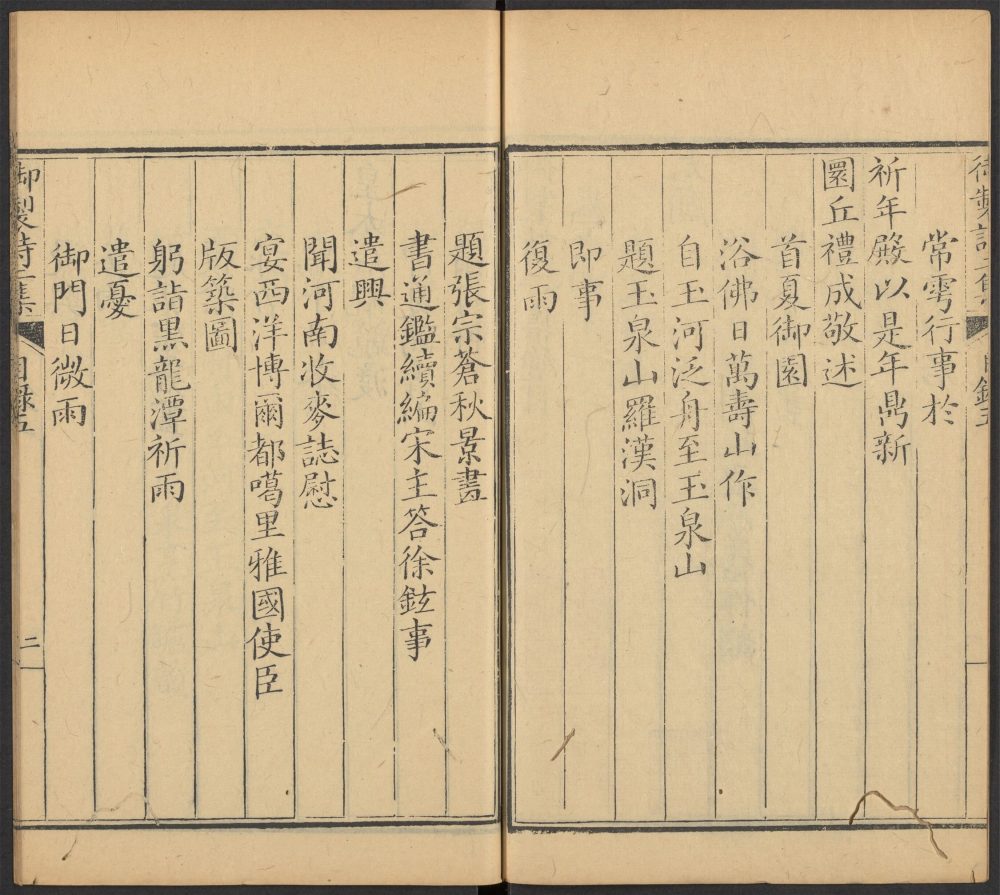 御製詩二集 目錄五
常雩行事於
祈年殿以是年鼎新
圜丘禮成敬述
首夏御園
浴佛日萬壽山作
自玉河泛舟至玉泉山
題玉泉山羅漢洞
即事
復雨
題張宗蒼秋景畫
書通鑑續編宋主答徐鉉事
遣興
聞河南收麥誌慰
宴西洋博爾都噶里雅國使臣
版築圖
躬詣黑龍潭祈雨
遣憂
御門日微雨
御製詩二集 目錄五 二